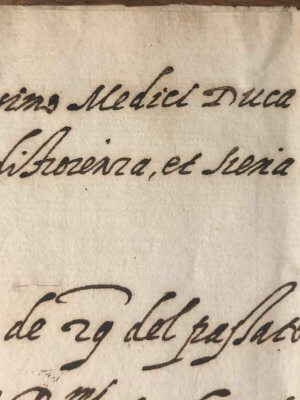 simo Medici Duca
di Fiorenza, et Siena
de 29 del passato